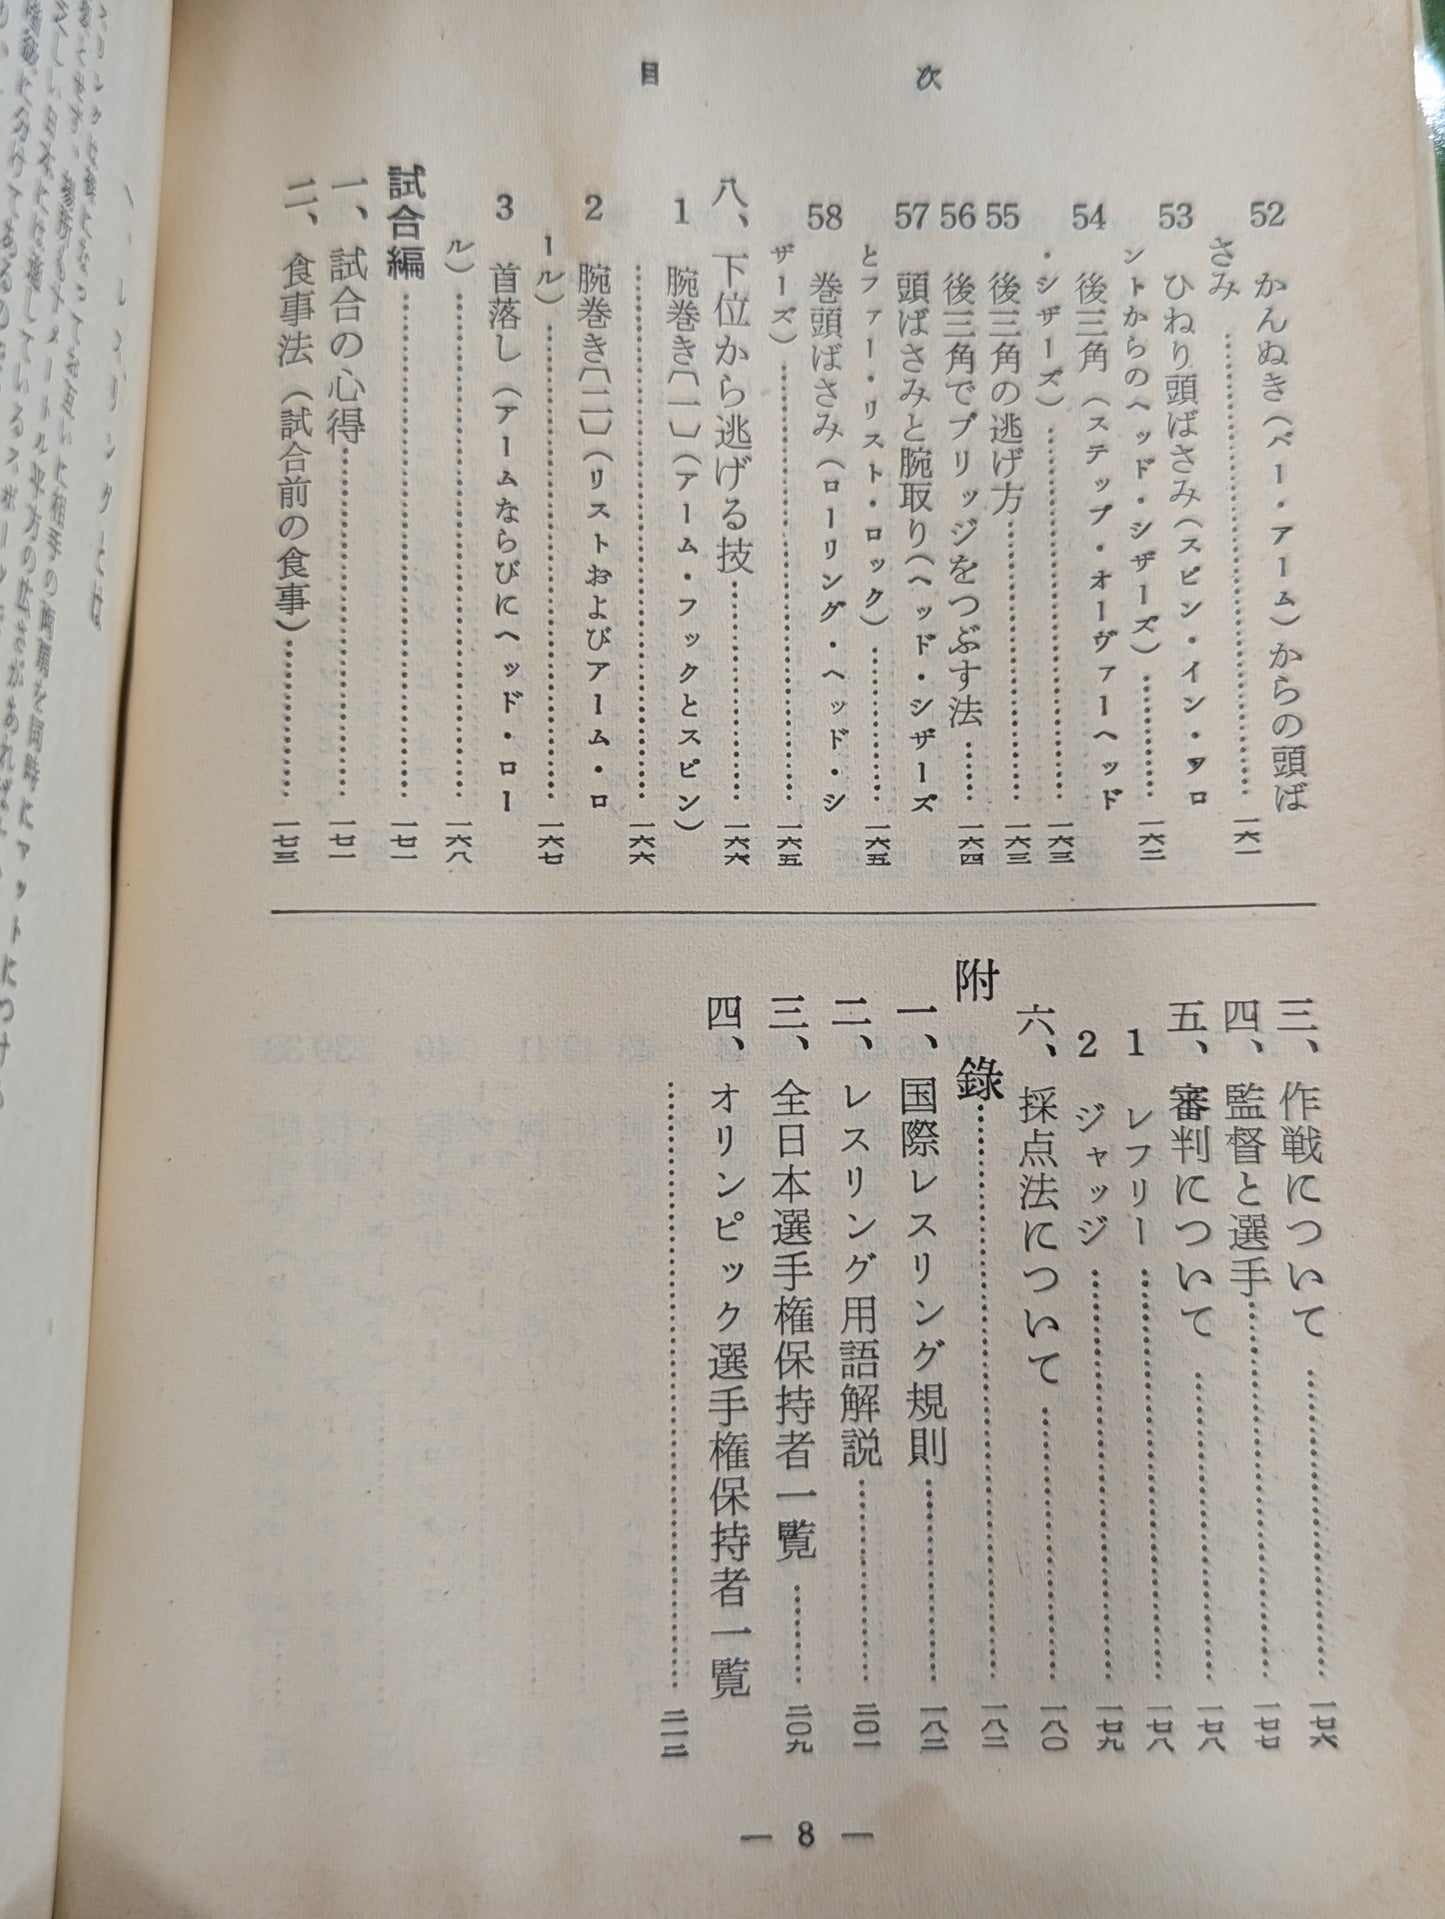 目次
52 かんぬき（バー・アーム）からの頭ば
さみ……………一六一
53 ひねり頭ばさみ（スピン・イン・フロ
ントからのヘッド・シザーズ）……一六二
54 後三角（ステップ・オーヴァーヘッド
・シザーズ）……………一六三
55 後三角の逃げ方……………一六三
56 後三角でブリッジをつぶす法……一六四
57 頭ばさみと腕取り（ヘッド・シザーズ
とファー・リスト・ロック）……一六五
58 巻頭ばさみ（ローリング・ヘッド・シ
ザーズ）……………一六五
八、下位から逃げる技……………一六六
1 腕巻き〔一〕（アーム・フックとスピン）
……………一六六
2 腕巻き〔二〕（リストおよびアーム・ロ
ール）……………一六七
3 首落し（アームならびにヘッド・ロー
ル）……………一六八
試合編……………一七一
一、試合の心得……………一七一
二、食事法（試合前の食事）……一七三
三、作戦について……………一七六
四、監督と選手……………一七七
五、審判について……………一七八
1 レフリー……………一七八
2 ジャッジ……………一七九
六、採点法について……………一八〇
附錄……………一八二
一、国際レスリング規則……一八二
二、レスリング用語解説……二〇一
三、全日本選手権保持者一覧……二〇九
四、オリンピック選手権保持者一覧
……………二一二
— 8 —